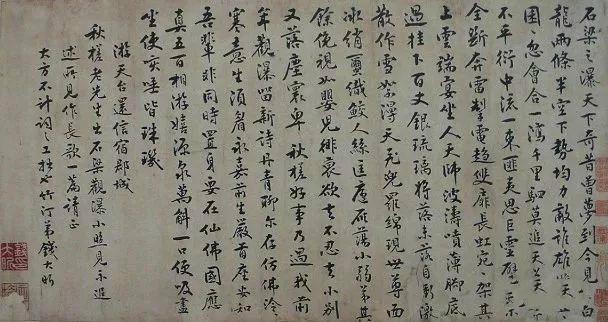 石梁之瀑天下奇昔曾夢到今見之白
龍兩條半空下勢均力敵誰雄雌天
困之忽會合一瀉千里駟莫追天
不平衍中流一束匪夷思巨靈擘不
全斷奔雷掣電趨長虹宛宛架其
上雲端宴坐人天師波濤噴薄腳底
過挂下百丈銀琉璃將落未落自動激
散作雪絮漫天飛兜羅綿現世尊面
冰綃織鮫人絲匡廬雁蕩小弱弟其
餘俛視如嬰兒徘徊欲去不忍去小別
又落塵寰卑秋槎好事乃過我前
年觀瀑留新詩丹青聊尔存仿佛泠泠
寒意生須眉永嘉前生嚴首座安知
吾輩非同時置身畧在仙佛國應
真五百相游嬉源泉萬斛一口便吸盡
坐使唾皆珠璣
游天台還信宿郡城
秋槎老先生出石梁觀瀑小照見示追
述所見作長歌一篇請正
大方不計詞之工拙也竹汀弟錢大昕